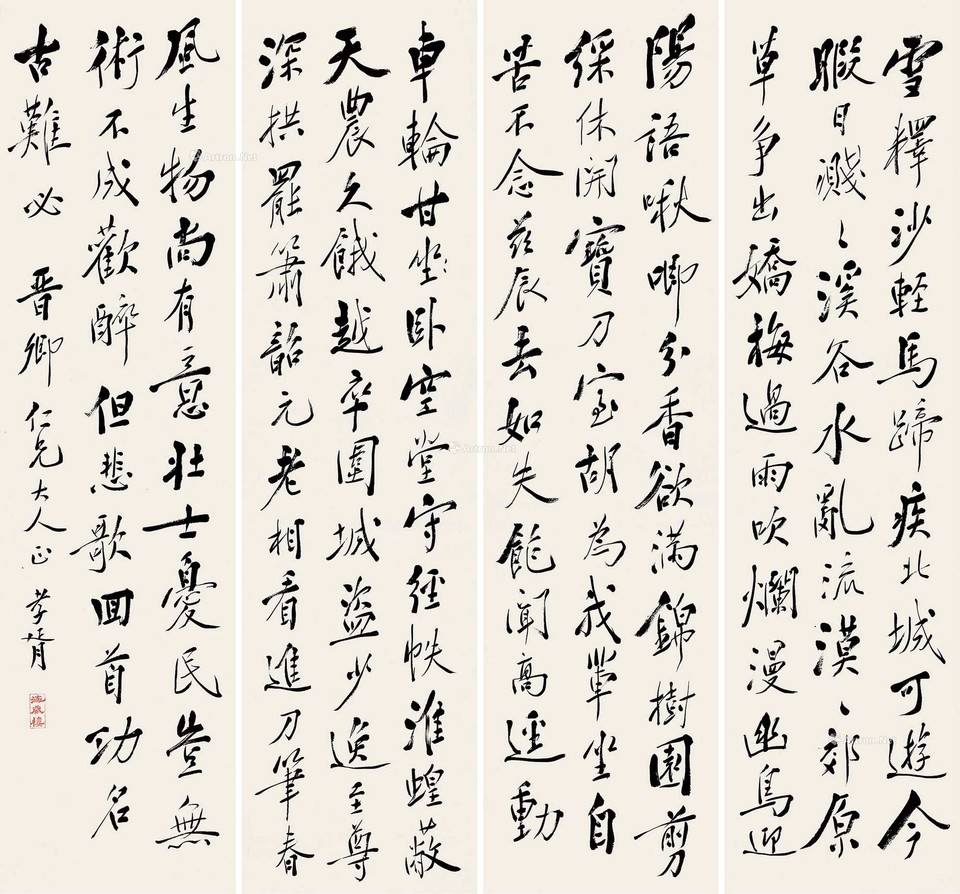 雪釋沙輕馬蹄疾北城可遊今
暇日濺〻溪谷水亂流漠〻郊原
草争出嬌梅過雨吹爛漫幽鳥迎
陽語啾唧分香欲滿錦樹園剪
綵休開寶刀室胡為我輩坐自
苦不念茲辰去如失飽聞高逕動
車輪甘坐卧空堂守經帙淮蝗蔽
天農久餓越卒圍城盜少逸至尊
深拱罷簫韶元老相看進刀筆春
風生物尚有意壯士憂民豈無
術不成歡醉但悲歌回首功名
古難必 晋卿仁兄大人正 孝胥